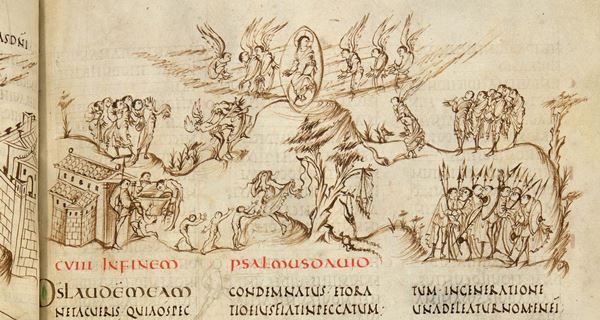 CVIII INFINEM PSALMUSDAUID
DSLAUDĒMEAM
NETACUERIS· QUIAOSPEC
CONDEMNATUS· ETORA
TIOEIUSFIATINPECCATUM·
TUM· INGENERATIONE
UNADELEATURNOMENEI